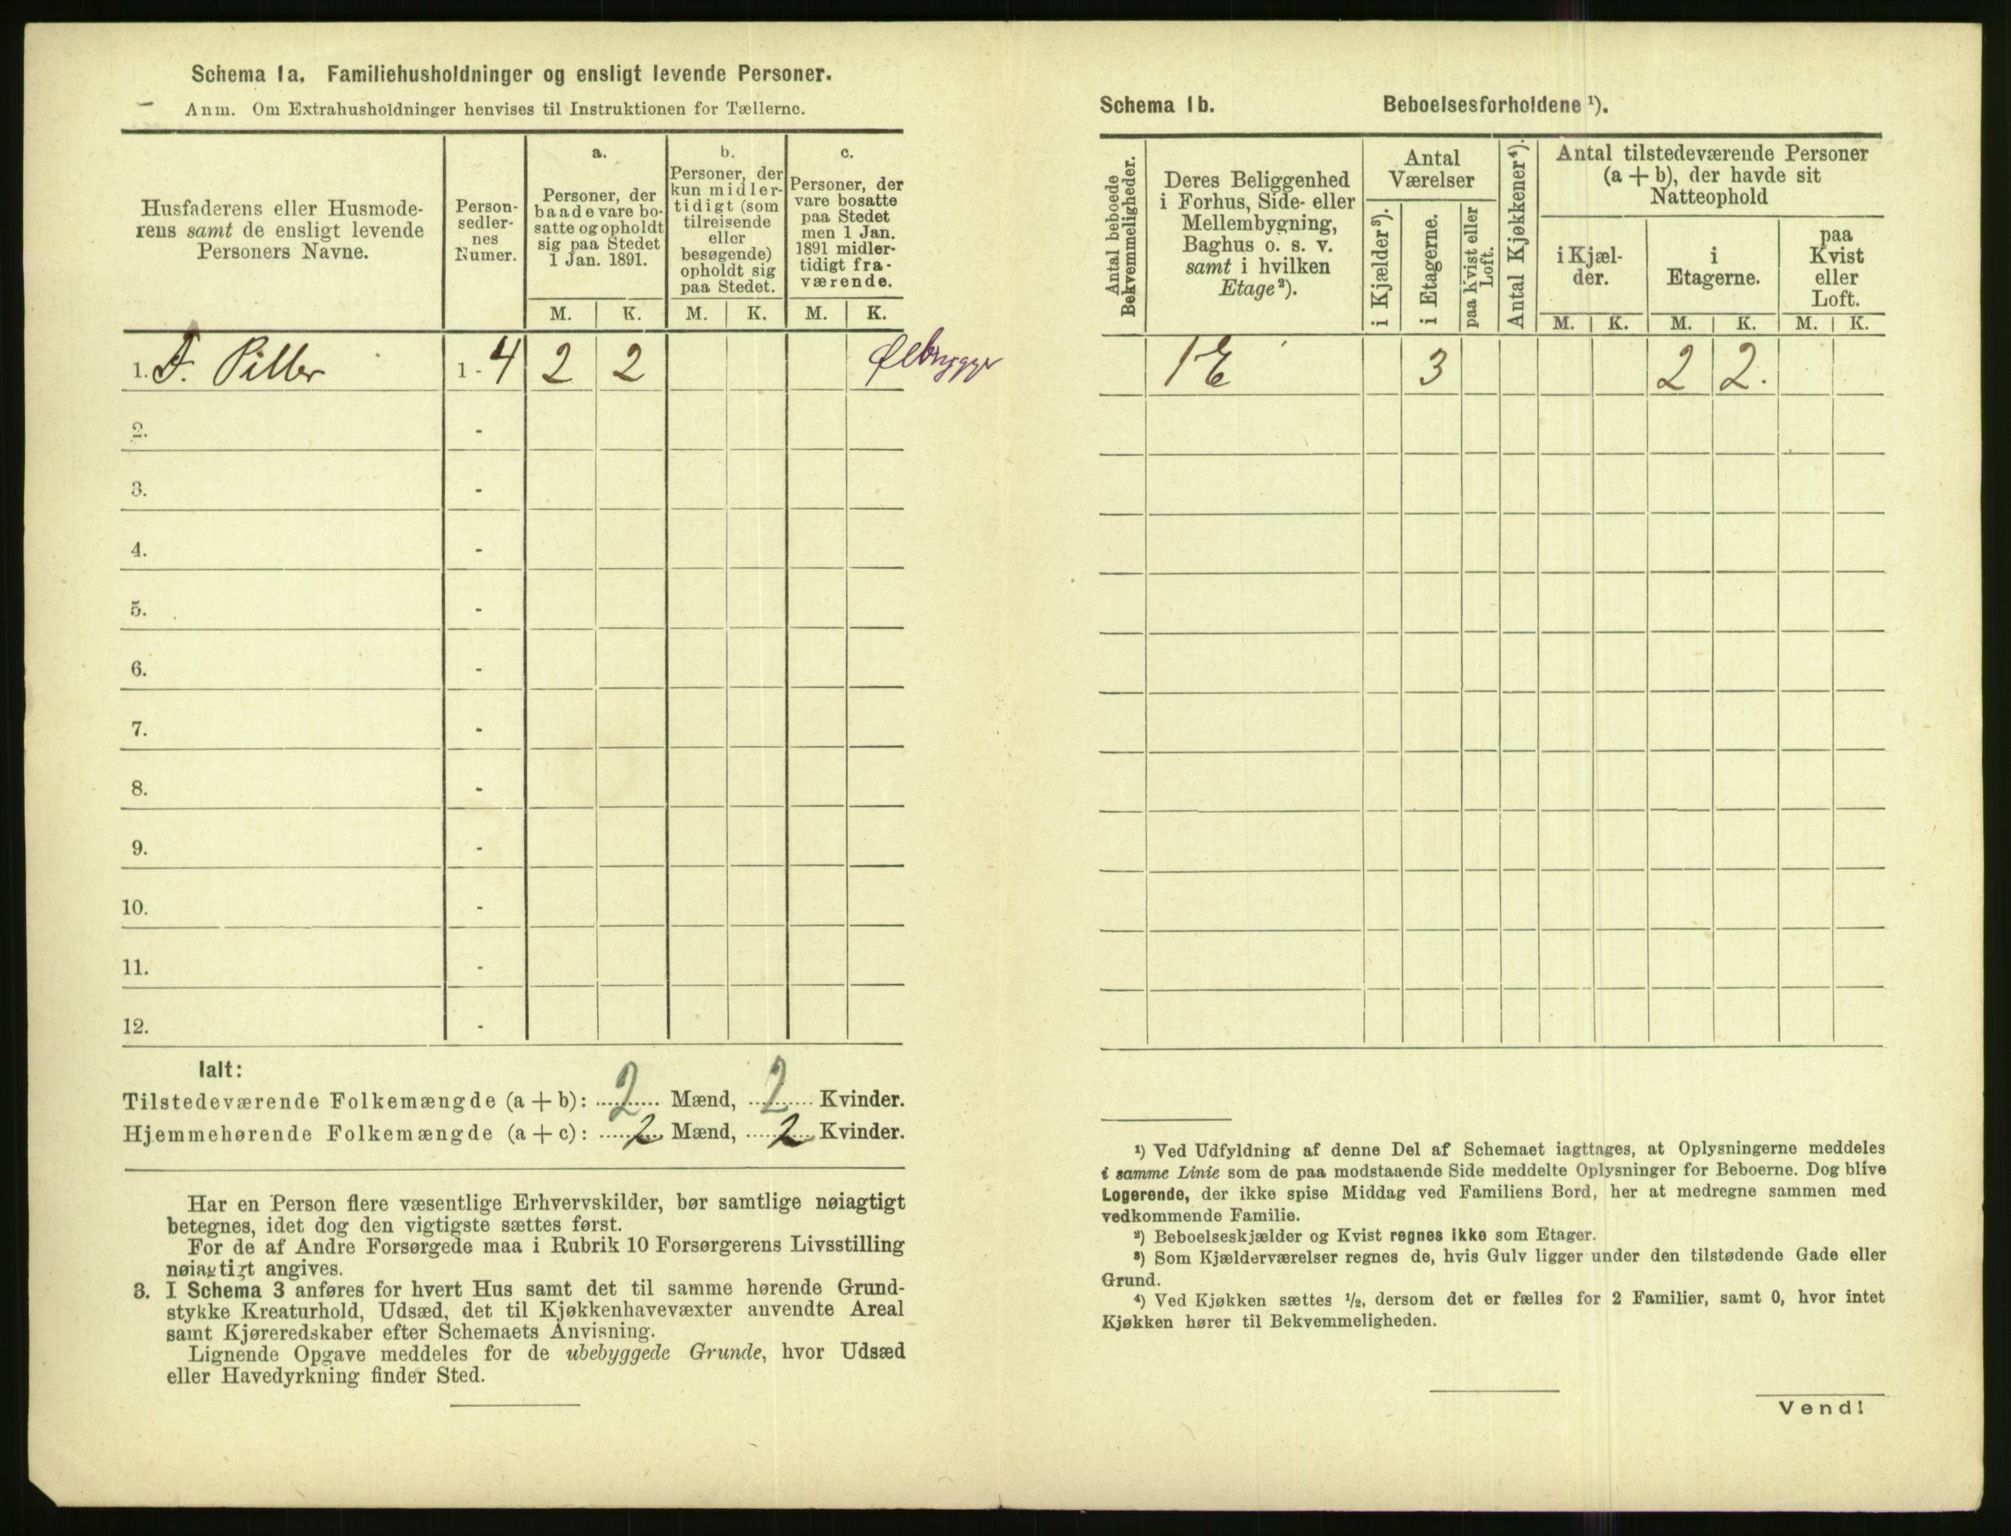 Schema 1a. Familiehusholdninger og ensligt levende Personer.
Anm. Om Extrahusholdninger henvises til Instruktionen for Tællerne.
Husfaderens eller Husmode-
rens samt de ensligt levende
Personers Navne.
Person-
sedler-
nes
Numer.
a.
Personer, der
baade vare bo-
satte og opholdt
sig paa Stedet
1 Jan. 1891.
b.
Personer, der
kun midler-
tidigt (som
tilreisende
eller
besøgende)
opholdt sig
paa Stedet.
c.
Personer, der
vare bosatte
paa Stedet
men 1 Jan.
1891 midler-
tidigt fra-
værende.
M. K. M. K. M. K.
1. F. Piller 1 - 4 2 2 Ølbrygger
2. -
3. -
4. -
5. -
6. -
7. -
8. -
9. -
10. -
11. -
12. -
Ialt:
Tilstedeværende Folkemængde (a + b): 2 Mænd, 2 Kvinder.
Hjemmehørende Folkemængde (a + c): 2 Mænd, 2 Kvinder.
Har en Person flere væsentlige Erhvervskilder, bør samtlige nøiagtigt
betegnes, idet dog den vigtigste sættes først.
For de af Andre Forsørgede maa i Rubrik 10 Forsørgerens Livsstilling
nøiagtigt angives.
3. I Schema 3 anføres for hvert Hus samt det til samme hørende Grund-
stykke Kreaturhold, Udsæd, det til Kjøkkenhavevæxter anvendte Areal
samt Kjøreredskaber efter Schemaets Anvisning.
Lignende Opgave meddeles for de ubebyggede Grunde, hvor Udsæd
eller Havedyrkning finder Sted.
Schema 1b. Beboelsesforholdene ¹).
Antal beboede
Bekvemmeligheder.
Deres Beliggenhed
i Forhus, Side- eller
Mellembygning,
Baghus o. s. v.
samt i hvilken
Etage ²).
Antal
Værelser
i Kjælder ³).
i Etagerne.
paa Kvist eller
Loft.
Antal Kjøkkener ⁴).
Antal tilstedeværende Personer
(a + b), der havde sit
Natteophold
i Kjæl-
der.
i
Etagerne.
paa
Kvist
eller
Loft.
M. K. M. K. M. K.
1 E 3 2 2.
¹) Ved Udfyldning af denne Del af Schemaet iagttages, at Oplysningerne meddeles
i samme Linie som de paa modstaaende Side meddelte Oplysninger for Beboerne. Dog blive
Logerende, der ikke spise Middag ved Familiens Bord, her at medregne sammen med
vedkommende Familie.
²) Beboelseskjælder og Kvist regnes ikke som Etager.
³) Som Kjælderværelser regnes de, hvis Gulv ligger under den tilstødende Gade eller
Grund.
⁴) Ved Kjøkken sættes ½, dersom det er fælles for 2 Familier, samt 0, hvor intet
Kjøkken hører til Bekvemmeligheden.
Vend!